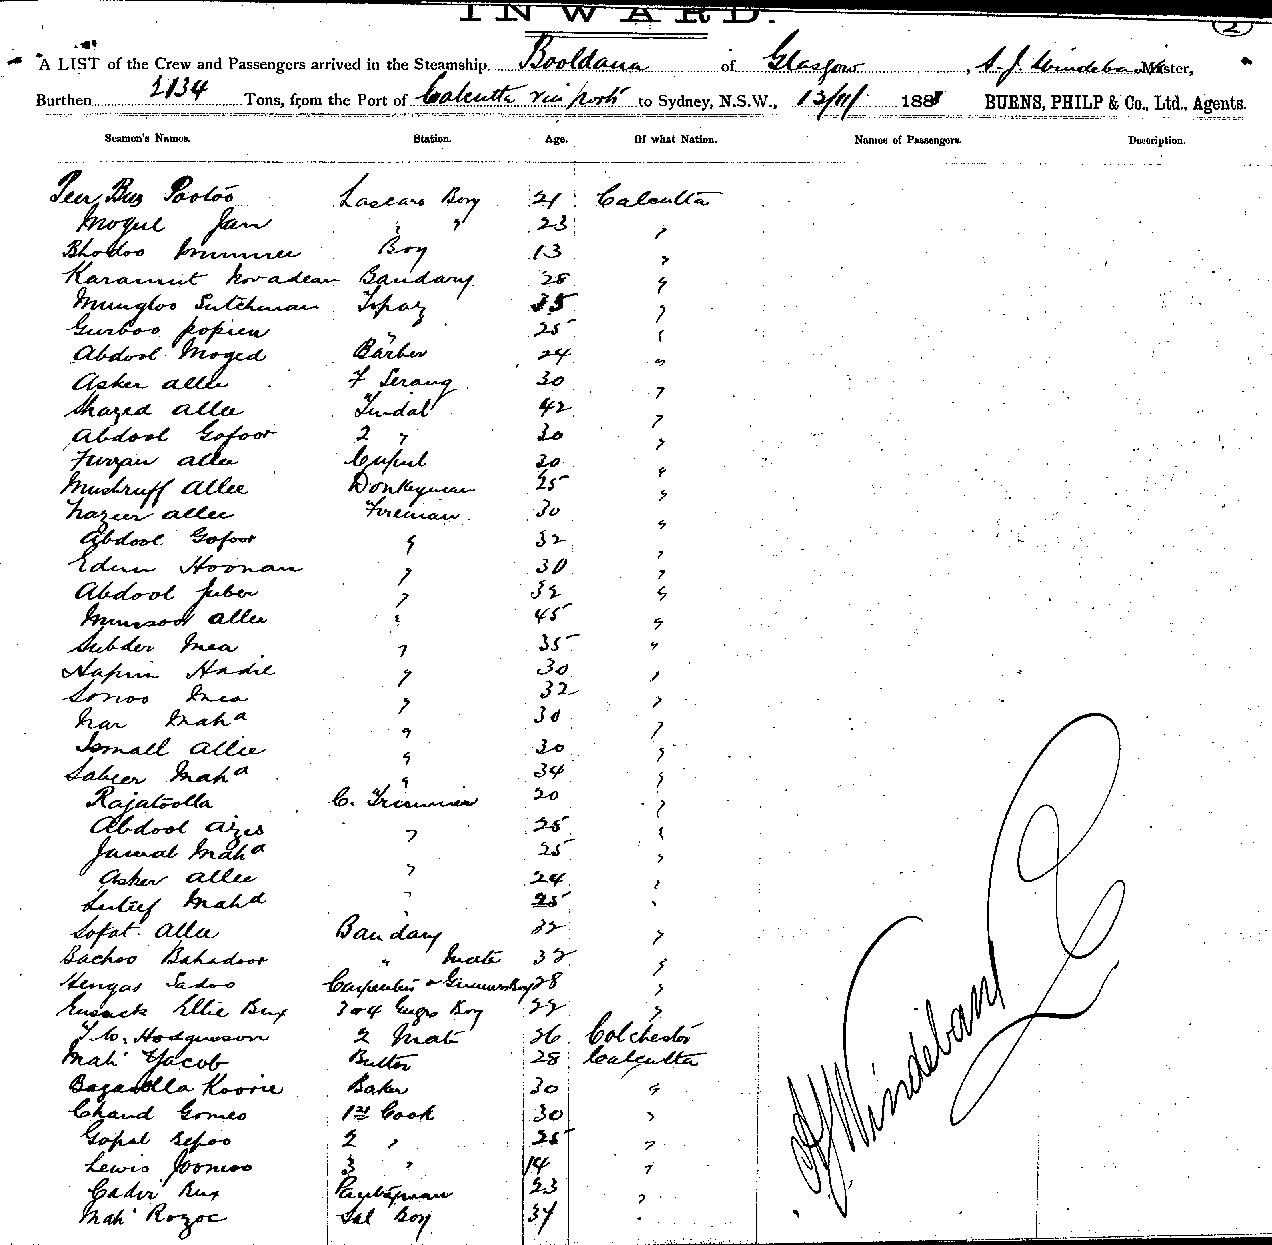 INWARD.
2
A LIST of the Crew and Passengers arrived in the Steamship Booldana of Glasgow, Master,
Burthen 2134 Tons, from the Port of Calcutta via ports to Sydney, N.S.W., 13/11/ 188 BURNS, PHILP & Co., Ltd., Agents.
Seamen's Names. Station. Age. Of what Nation. Names of Passengers. Description.
Peer Bux Lascars Boy 21 Calcutta
Mogul Jan " " 23 "
Bhodoo Boy 13 "
Karamut Bandary 28 "
Mungloo Lutchman Topaz 35 "
Gursoo popien " 25 "
Abdool Moged Barber 24 "
Asker allee F Serang 30 "
Shazed allee Tindal 42 "
Abdool Gofoor 2 " 30 "
Furzan allee 30 "
Mushruff Allee Donkeyman 25 "
Nazeer allee Fireman 30 "
Abdool Gofoor " 32 "
Edun Hoonan " 30 "
Abdool Juber " 32 "
Munsoor allee " 45 "
Subder Mea " 35 "
Hadie " 30 "
Sonoo Mea " 32 "
Nar Maha " 30 "
Ismall allie " 30 "
Sabeer Maha " 34 "
Rajatoolla C. Trimmer 20 "
Abdool Azes " 25 "
Jumal Maha " 25 "
Asker allee " 24 "
Lutief Mahd " 25 "
Sofat allee Bandary 32 "
Bachoo Bahadoor " mate 32 "
Hengas Sadoo Carpenter & Boy 28 "
Ellie Bux 3 & 4 Boy 22 "
Hodginson 2 Mate 26 Colchester
Mah' Yacob Butler 28 Calcutta
Koorie Baker 30 "
Chand Gomes 1st Cook 30 "
Gopal Sepoo 2 " 25 "
Lewis 3 " 14 "
Cader Bux Pantryman 23 "
Mah' Rozoc Sal Boy 34
A J Windebank